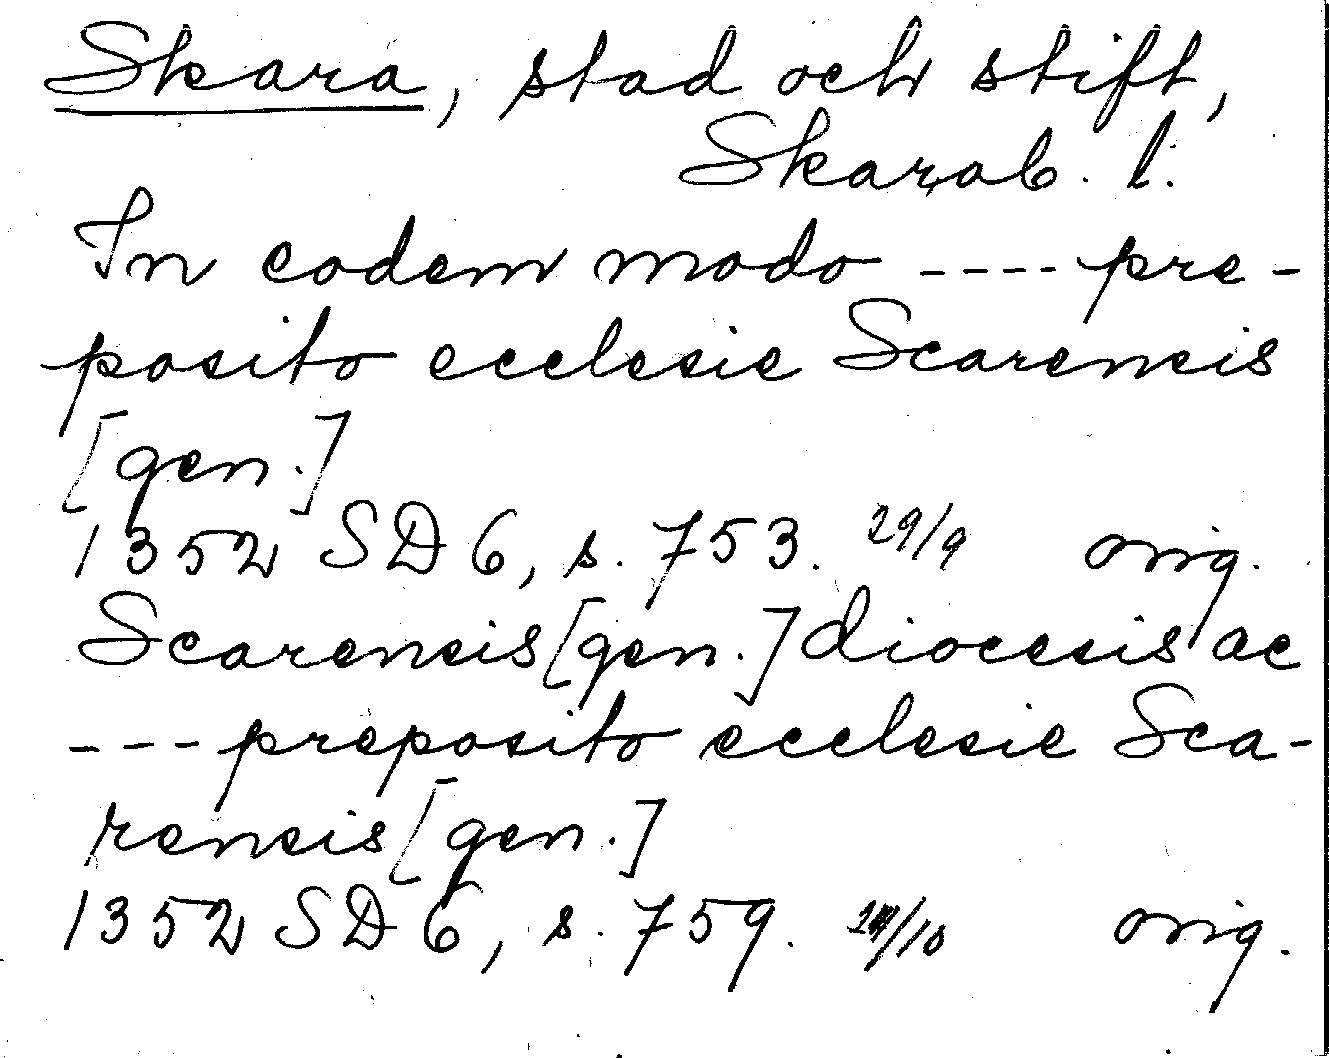 Skara, stad och stift,
Skarab. l.
In eodem modo ---- pre-
posito ecclesie Scarensis
[gen.]
1352 SD 6, s. 753. 29/9 orig.
Scarensis [gen.] diocesis ac
--- preposito ecclesie Sca-
rensis [gen.]
1352 SD 6, s. 759. orig.